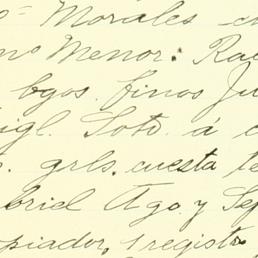 Morales
mo Menor. Ra
bgos. finos Ju
igl. Soto á c
grls. cuesta te
briel Ago. y Se
piador, 1 registro